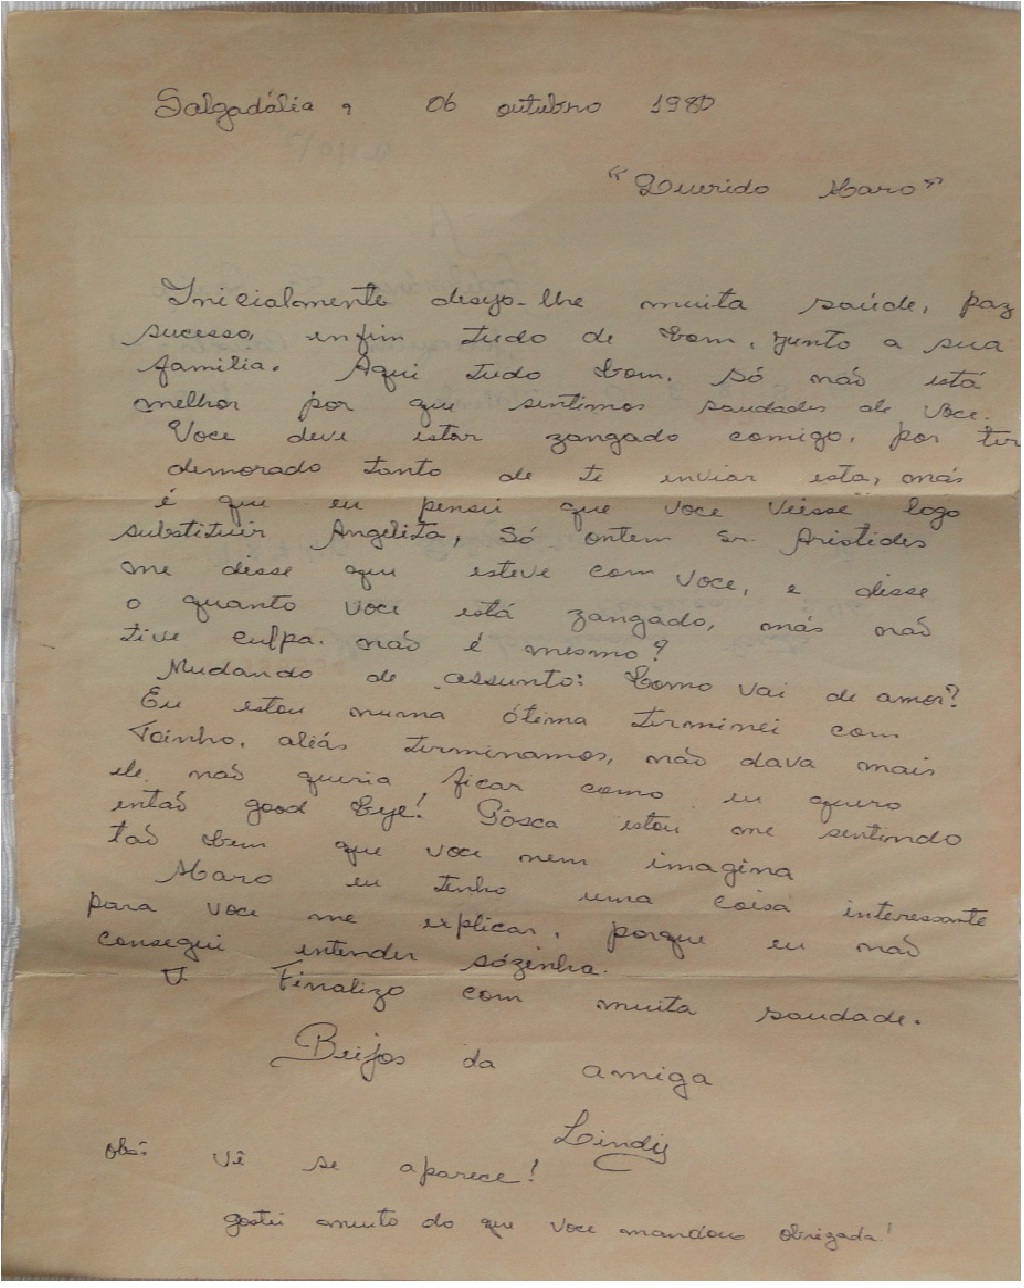 Salgadália, 06 outubro 1980
"Querido Maro"
Inicialmente desejo-lhe muita saúde, paz
sucesso, enfim tudo de bom, junto a sua
família. Aqui tudo bom. só não está
melhor por que sentimos saudades de voce.
Voce deve estar zangado comigo, por ter
demorado tanto de te enviar esta, más
é que eu pensei que voce viesse logo
substituir Angelita, Só ontem sr. Aristides
me disse que esteve com voce, e disse
o quanto voce está zangado, más não
tive culpa. não é mesmo?
Mudando de assunto: Como vai de amor?
Eu estou numa ótima terminei com
Toinho, aliás terminamos, não dava mais
ele não queria ficar como eu quero
então good bye! Pôsca estou me sentindo
tão bem que voce nem imagina
Maro eu tenho uma coisa interessante
para voce me explicar, porque eu não
consegui entender sózinha.
Finalizo com muita saudade.
Beijos da amiga
Lindy
obs: Vê se aparece!
gostei muito do que voce mandou obrigada!